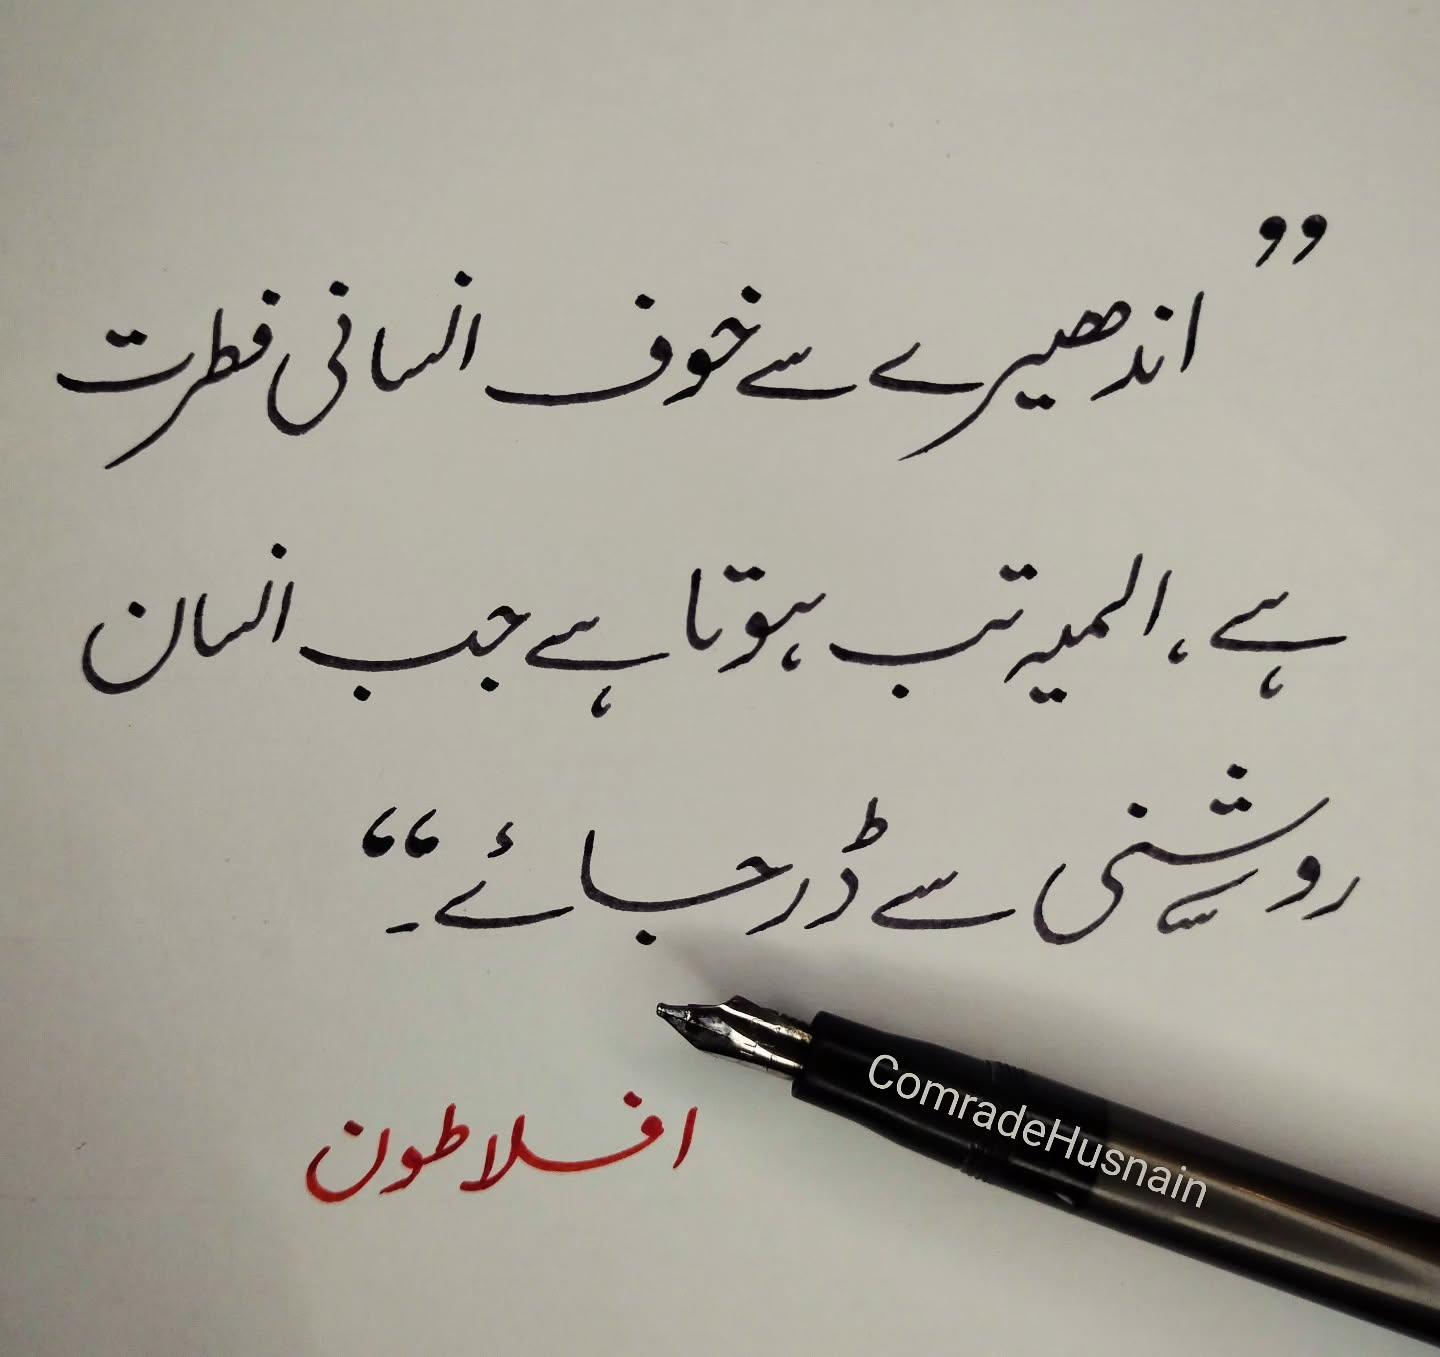 ”اندھیرے سے خوف انسانی فطرت
ہے، المیہ تب ہوتا ہے جب انسان
روشنی سے ڈر جائے۔“
افلاطون
ComradeHusnain